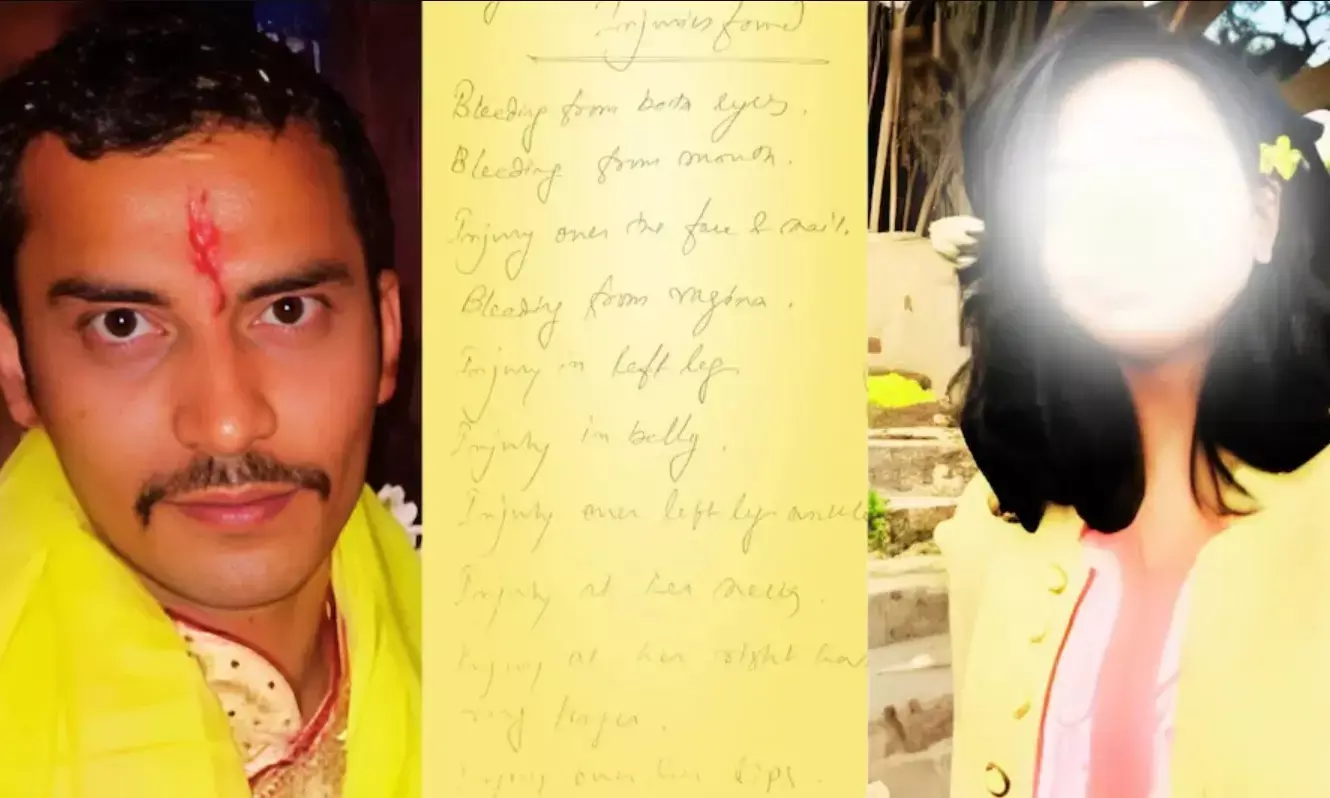 Injuries found
Bleeding from both eyes.
Bleeding from mouth.
Injury over the face & nail.
Bleeding from vagina.
Injury in left leg
Injury in belly.
Injury over left leg ankle
Injury at her neck.
Injury at her right han
ring finger.
Injury over her lips.